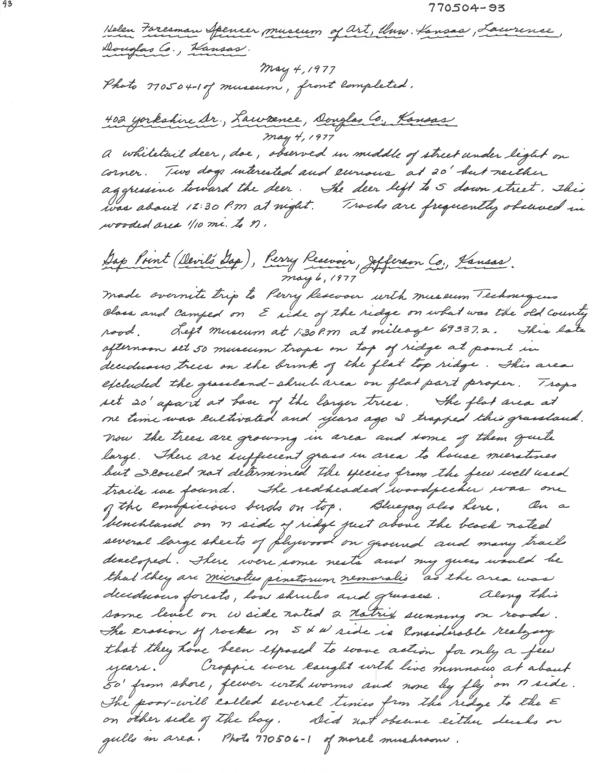 93
770504-93
Helen Foresman Spencer Museum of Art, Univ. Kansas, Lawrence,
Douglas Co., Kansas.
May 4, 1977
Photo 770504-1 of museum, front completed.
402 Yorkshire Dr., Lawrence, Douglas Co., Kansas
May 4, 1977
A whitetail deer, doe, observed in middle of street under light on
corner. Two dogs interested and curious at 20' but neither
aggressive toward the deer. The deer left to S down street. This
was about 12:30 PM at night. Tracks are frequently observed in
wooded area 1/10 mi. to N.
Gap Point (Devil's Gap), Perry Resevoir, Jefferson Co., Kansas.
May 6, 1977
Made overnite trip to Perry Resevoir with Museum Techniques
Class and camped on E side of the ridge on what was the old County
road. Left Museum at 1:30 P.M at mileage 69337.2. This late
afternoon set 50 museum traps on top of ridge at point in
deciduous trees on the brink of the flat top ridge. This area
excluded the grassland-shrub area on flat part proper. Traps
set 20' apart at base of the larger trees. The flat area at
one time was cultivated and years ago I trapped this grassland.
Now the trees are growing in area and some of them quite
large. There are sufficient grass in area to house microtines
but I could not determined the species from the few well used
trails we found. The redheaded woodpecker was one
of the conspicious birds on top. Bluejay also here. On a
benchland on N side of ridge just above the beach noted
several large sheets of plywood on ground and many trails
developed. There were some nests and my guess would be
that they are Microtus pinetorum nemoralis as the area was
deciduous forests, low shrubs and grasses. Along this
same level on W side noted 2 Natrix sunning on roads.
The erosion of rocks on S & W side is considerable realizing
that they have been exposed to wave action for only a few
years. Crappie were caught with live minnows at about
50' from shore, fewer with worms and none by fly on N side.
The poor-will called several times from the ridge to the E
on other side of the bay. Did not observe either ducks or
gulls in area. Photo 770506-1 of morel mushroom.